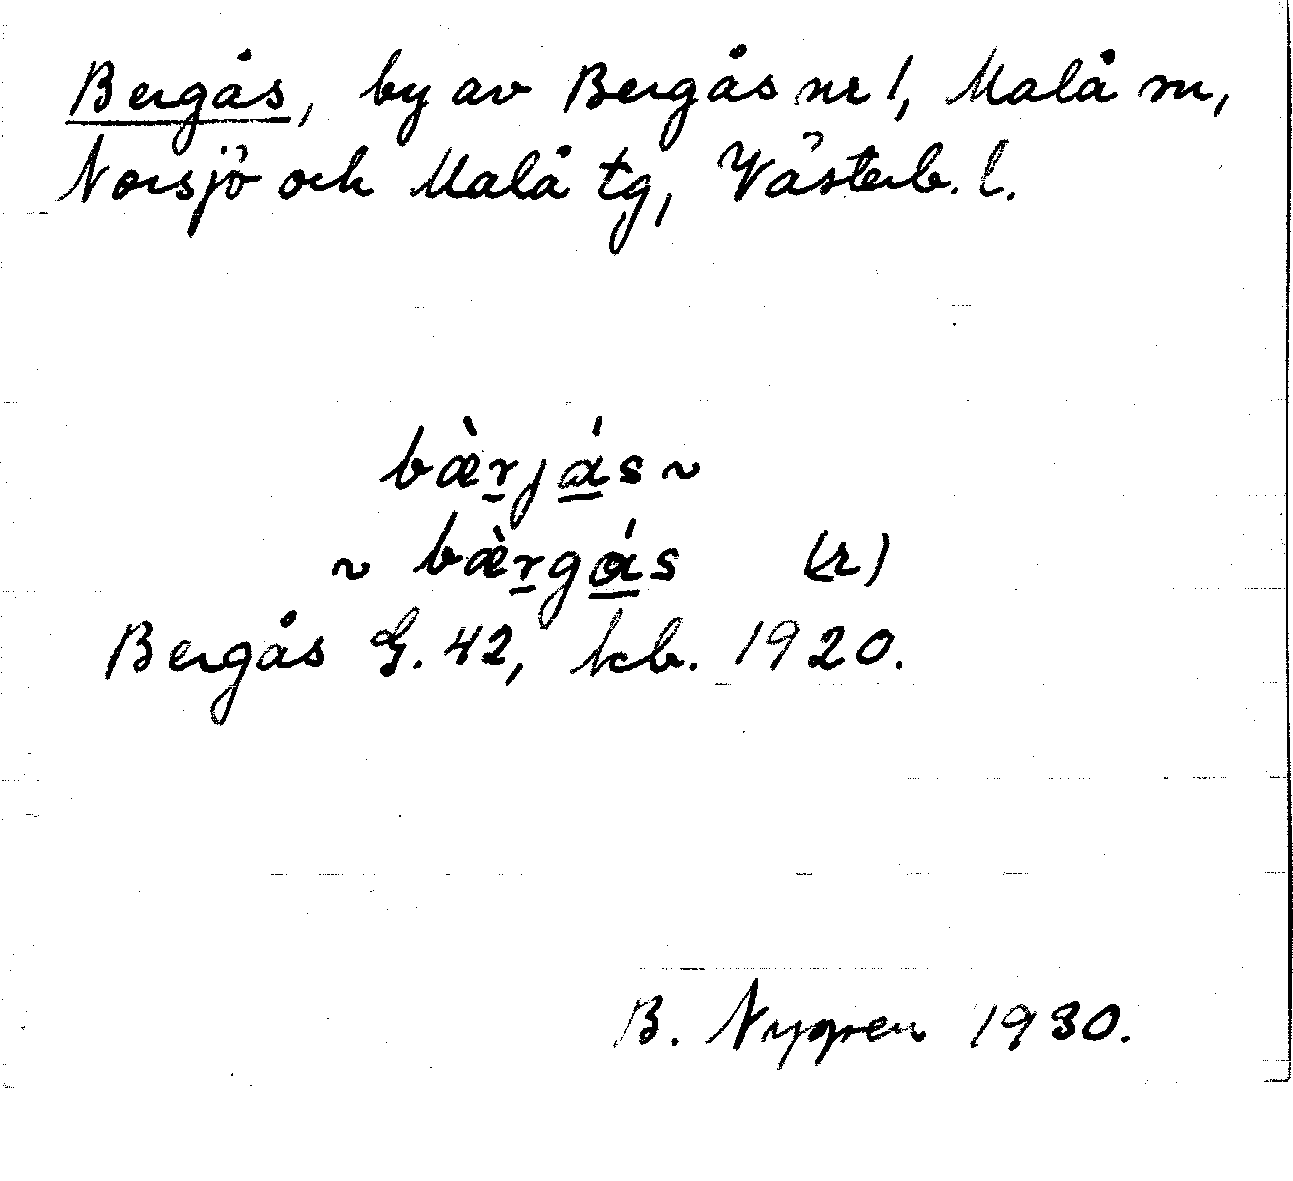 Bergås, by av Bergås nr 1, Malå sn,
Norsjö och Malå tg, Västerb. l.
bæ̀r̠já̠s ~
~ bæ̀r̠gá̠s (r)
Bergås G. 42, kb. 1920.
B. Nygren 1930.